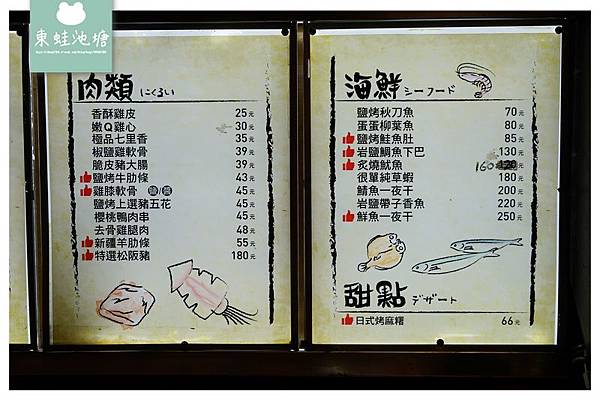 東蛙池塘
肉類 にくるい
香酥雞皮 25元
嫩Q雞心 30元
極品七里香 35元
椒鹽雞軟骨 39元
脆皮豬大腸 39元
鹽烤牛肋條 43元
雞膝軟骨 鹽/醬 45元
鹽烤上選豬五花 45元
櫻桃鴨肉串 45元
去骨雞腿肉 48元
新疆羊肋條 55元
特選松阪豬 180元
海鮮 シーフード
鹽烤秋刀魚 70元
蛋蛋柳葉魚 80元
鹽烤鮭魚肚 85元
岩鹽鯛魚下巴 130元
炙燒魷魚 160 120元
很單純草蝦 180元
鯖魚一夜干 200元
岩鹽帶子香魚 220元
鮮魚一夜干 250元
甜點 デザート
日式烤麻糬 66元